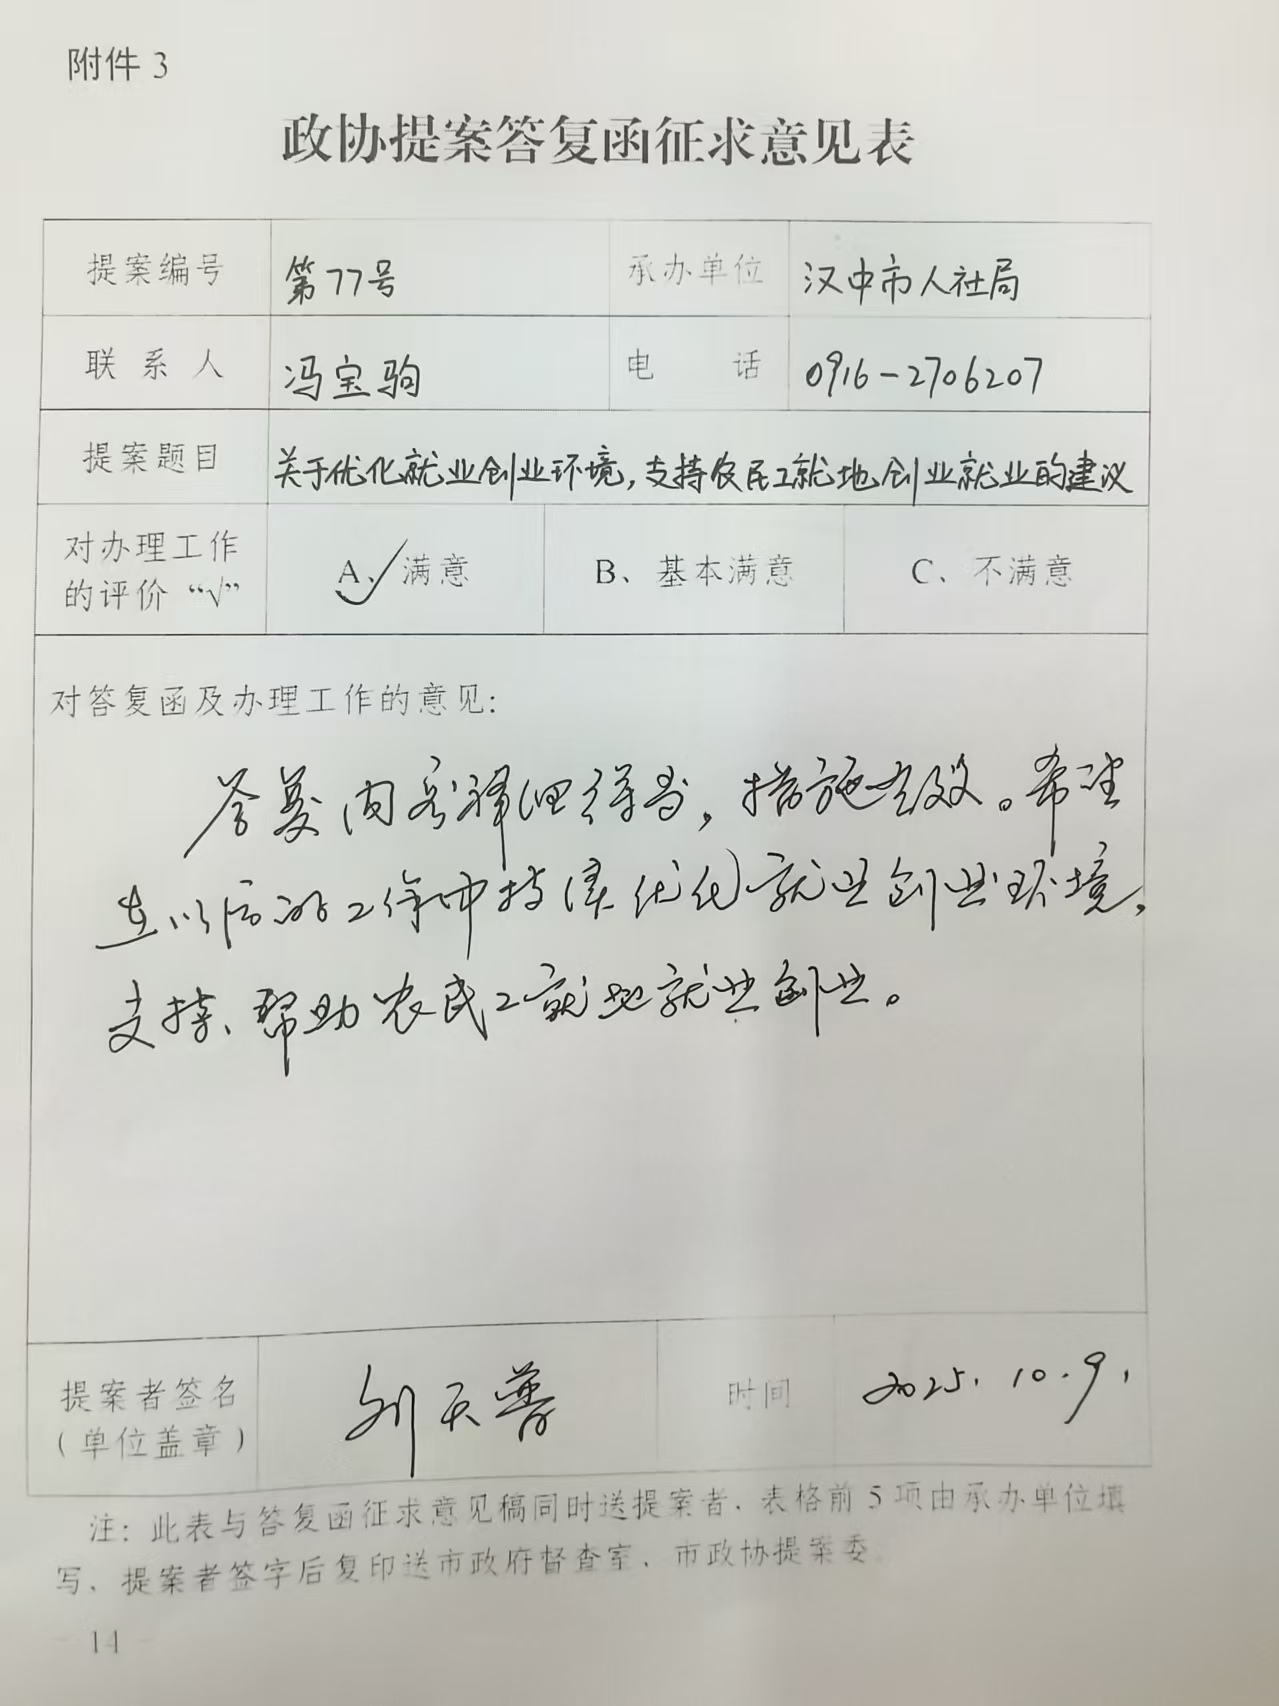 附件 3
政协提案答复函征求意见表
提案编号 第77号 承办单位 汉中市人社局
联系人 冯宝驹 电话 0916-2706207
提案题目 关于优化就业创业环境,支持农民工就地创业就业的建议
对办理工作
的评价“√” A、√满意 B、基本满意 C、不满意
对答复函及办理工作的意见:
答复内容 得当,措施有效。希望
在以后的工作中持续优化就业创业环境,
支持、帮助农民工就地就业创业。
提案者签名
(单位盖章) 刘天普 时间 2025.10.9.
注: 此表与答复函征求意见稿同时送提案者、表格前 5 项由承办单位填
写、提案者签字后复印送市政府督查室、市政协提案委
- 14 -